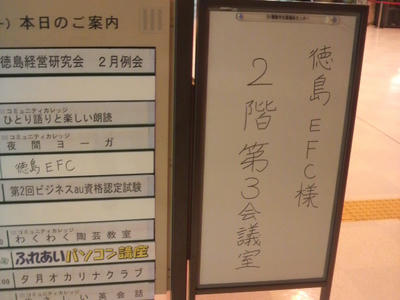 ー) 本日のご案内
徳島経営研究会 2月例会
コミュニティカレッジ
ひとり語りと楽しい朗読
コミュニティカレッジ
夜間ヨーガ
徳島EFC
第2回ビジネスau資格認定試験
コミュニティカレッジ
わくわく陶芸教室
ふれあいパソコン講座
夕月オカリナクラブ
英会話
徳島EFC様
2階第3会議室